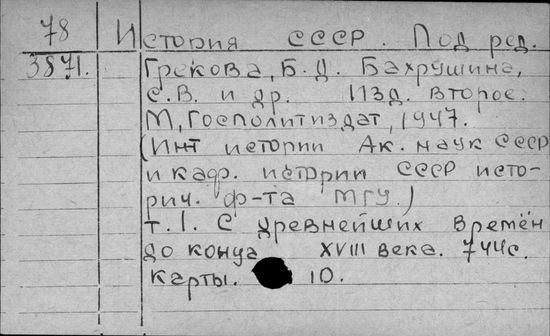 78 История СССР. Под ред.
3871. Грекова, Б. Д. Бахрушина,
С.В. и др. Изд. второе.
М, Госполитиздат, 1947.
(Инт истории Ак. наук СССР
и каф. истории СССР исто-
рич. ф-та МГУ.)
т. I. С древнейших времён
до конца XVIII века. 744с.
карты. 10.